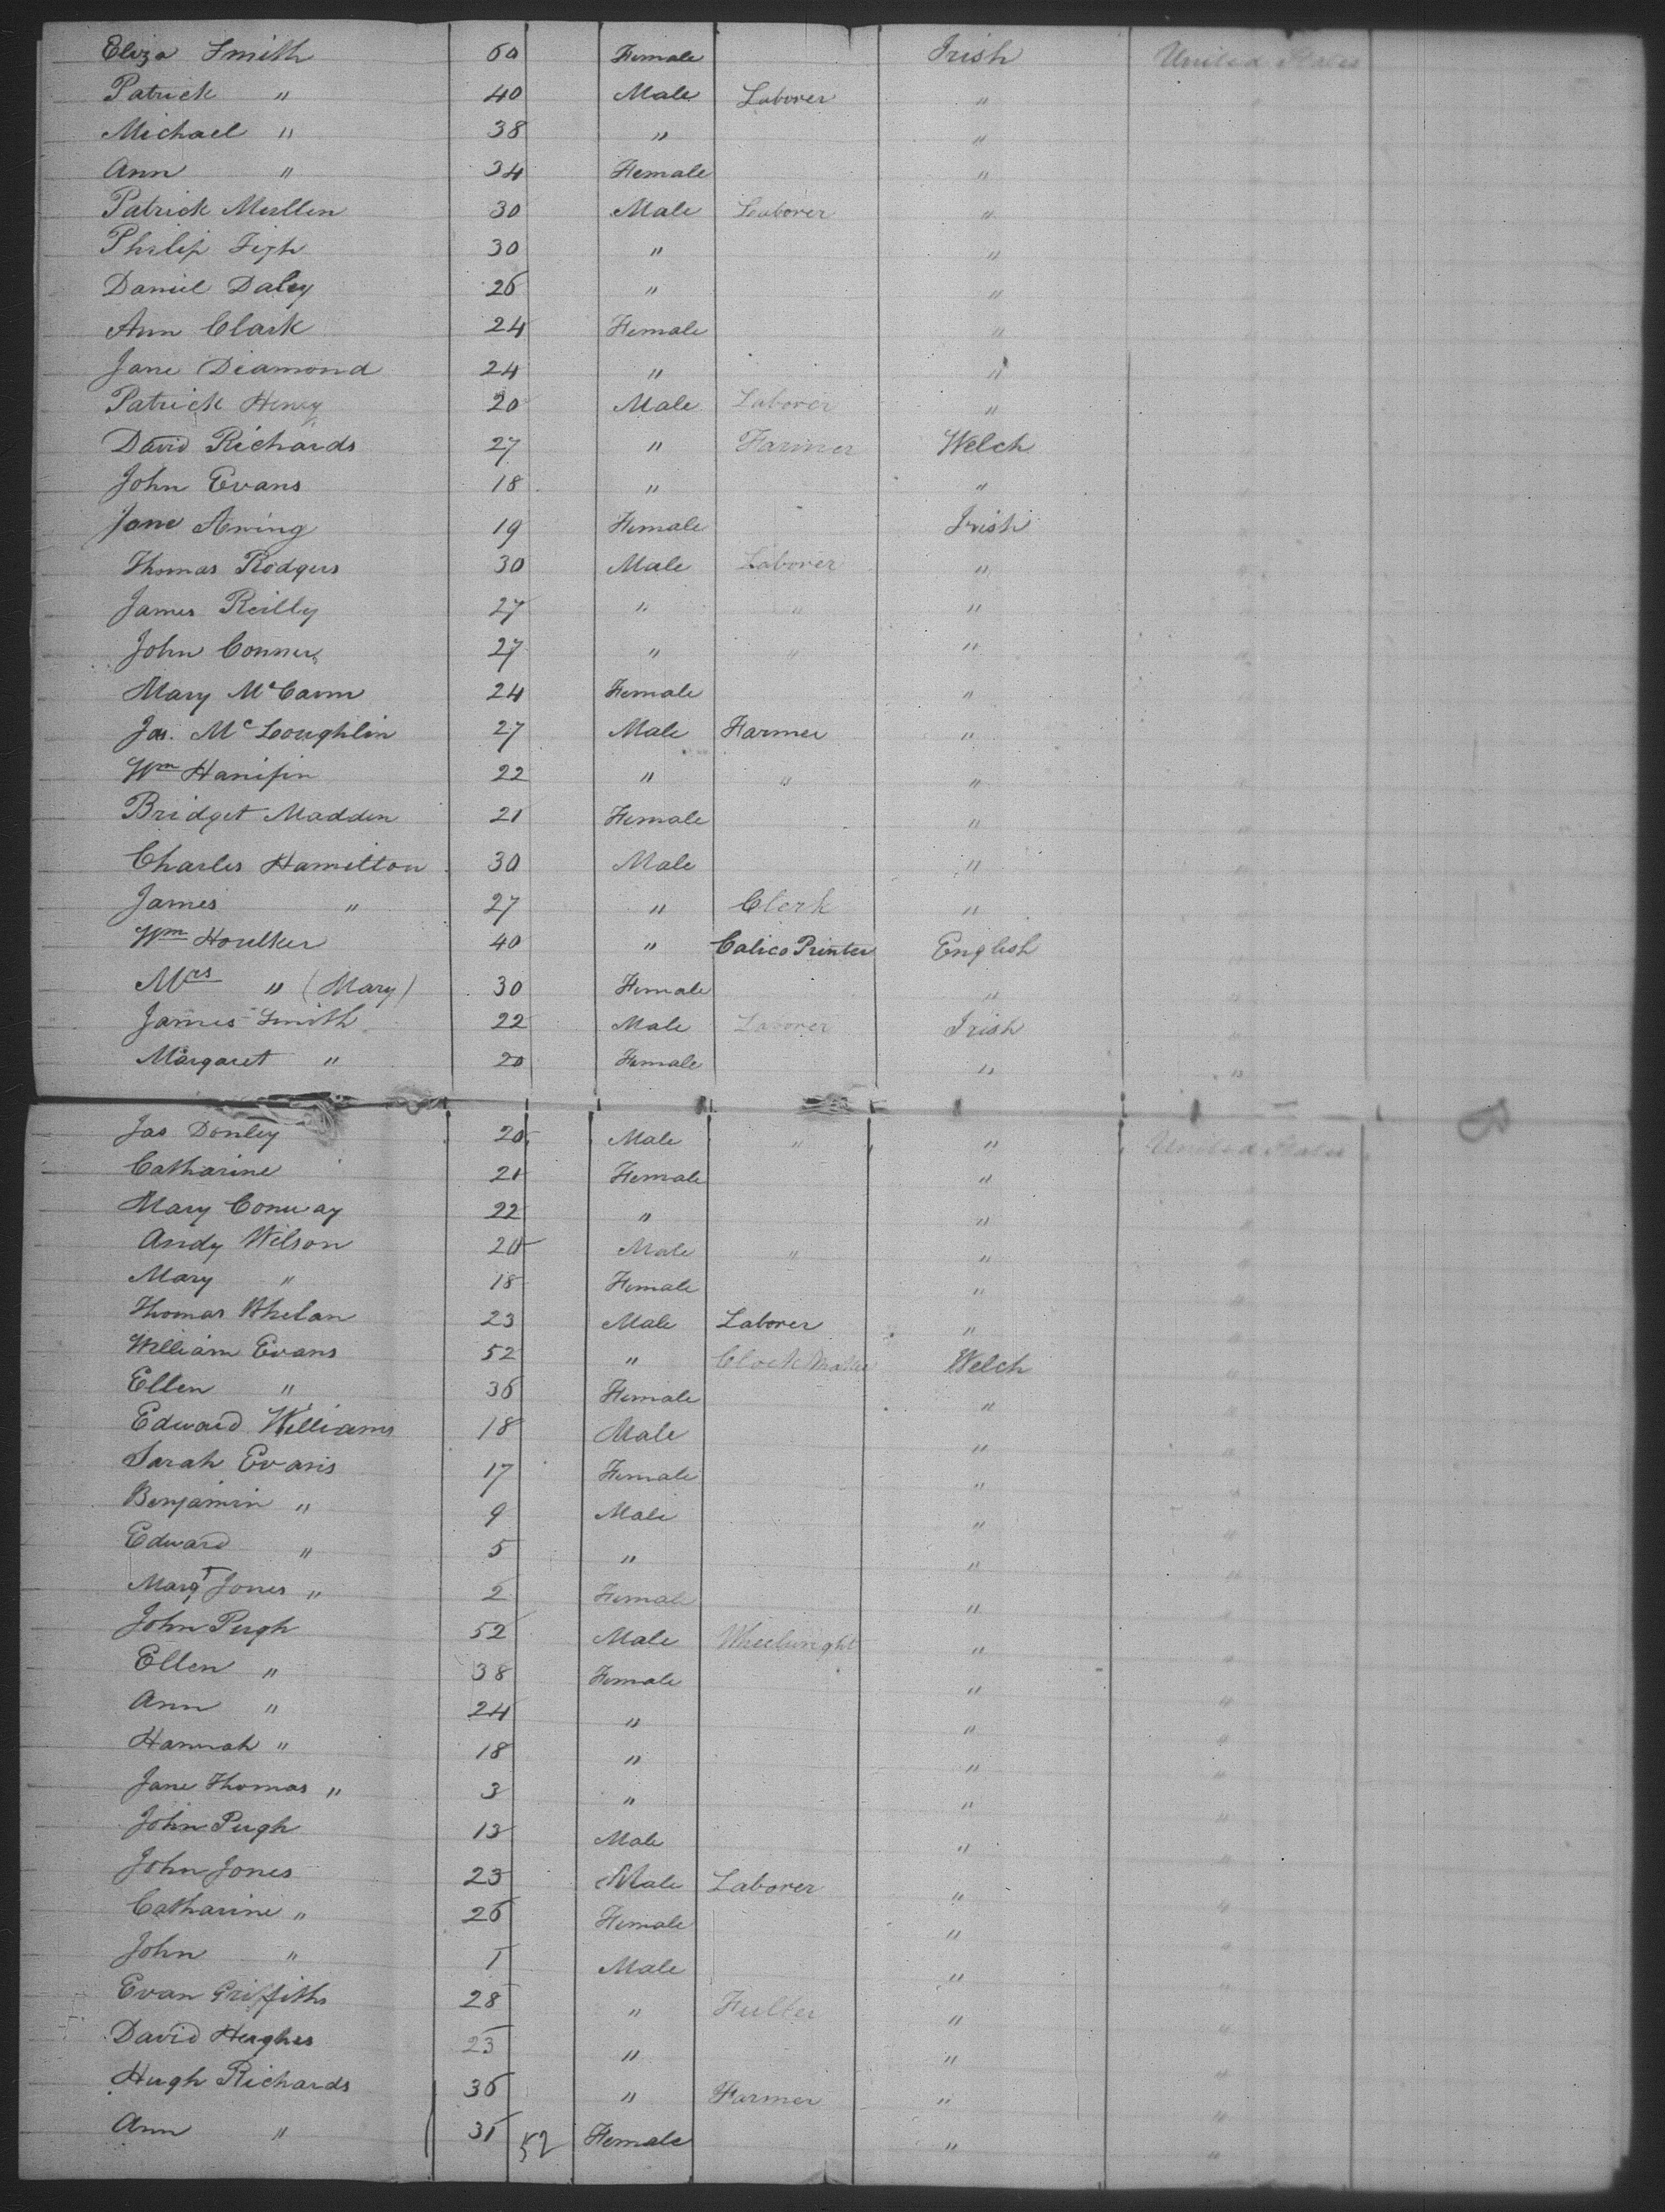 Eliza Smith 60 Female Irish United States
Patrick " 40 Male Laborer " "
Michael " 38 " "
Ann " 34 Female "
Patrick Mullen 30 Male Laborer "
Philip 30 " "
Daniel Daley 26 " "
Ann Clark 24 Female "
Jane Diamond 24 " "
Patrick Henry 20 Male Laborer "
David Richards 27 " Farmer Welch "
John Evans 18 " "
Jane 19 Female Irish
Thomas Rodgers 30 Male Laborer " "
James Reilly 27 " " " "
John Conner 27 " " " "
Mary McCann 24 Female " "
Jas. McLoughlin 27 Male Farmer " "
Wm Hanifin 22 " " " "
Bridget Madden 21 Female " "
Charles Hamilton 30 Male " "
James " 27 " Clerk " "
Wm Houlker 40 " Calico Printer English "
Mrs " (Mary) 30 Female " "
James Smith 22 Male Laborer Irish "
Margaret " 20 Female " "
Jas Donley 20 Male " " United States
Catharine 21 Female " "
Mary Conway 22 " " "
Andy Wilson 20 Male " " "
Mary " 18 Female " "
Thomas Whelan 23 Male Laborer " "
William Evans 52 " Clock Maker Welch "
Ellen " 36 Female " "
Edward Williams 18 Male " "
Sarah Evans 17 Female " "
Benjamin " 9 Male " "
Edward " 5 " " "
Margt Jones " 2 Female " "
John Pugh 52 Male Wheelwright " "
Ellen " 38 Female " "
Ann " 24 " " "
Hannah " 18 " " "
Jane Thomas " 3 " " "
John Pugh 13 Male " "
John Jones 23 Male Laborer " "
Catharine " 26 Female " "
John " 1 Male " "
Evan Griffiths 28 " " "
David Hughes 25 " " "
Hugh Richards 36 " Farmer " "
Ann " 31 52 Female " "